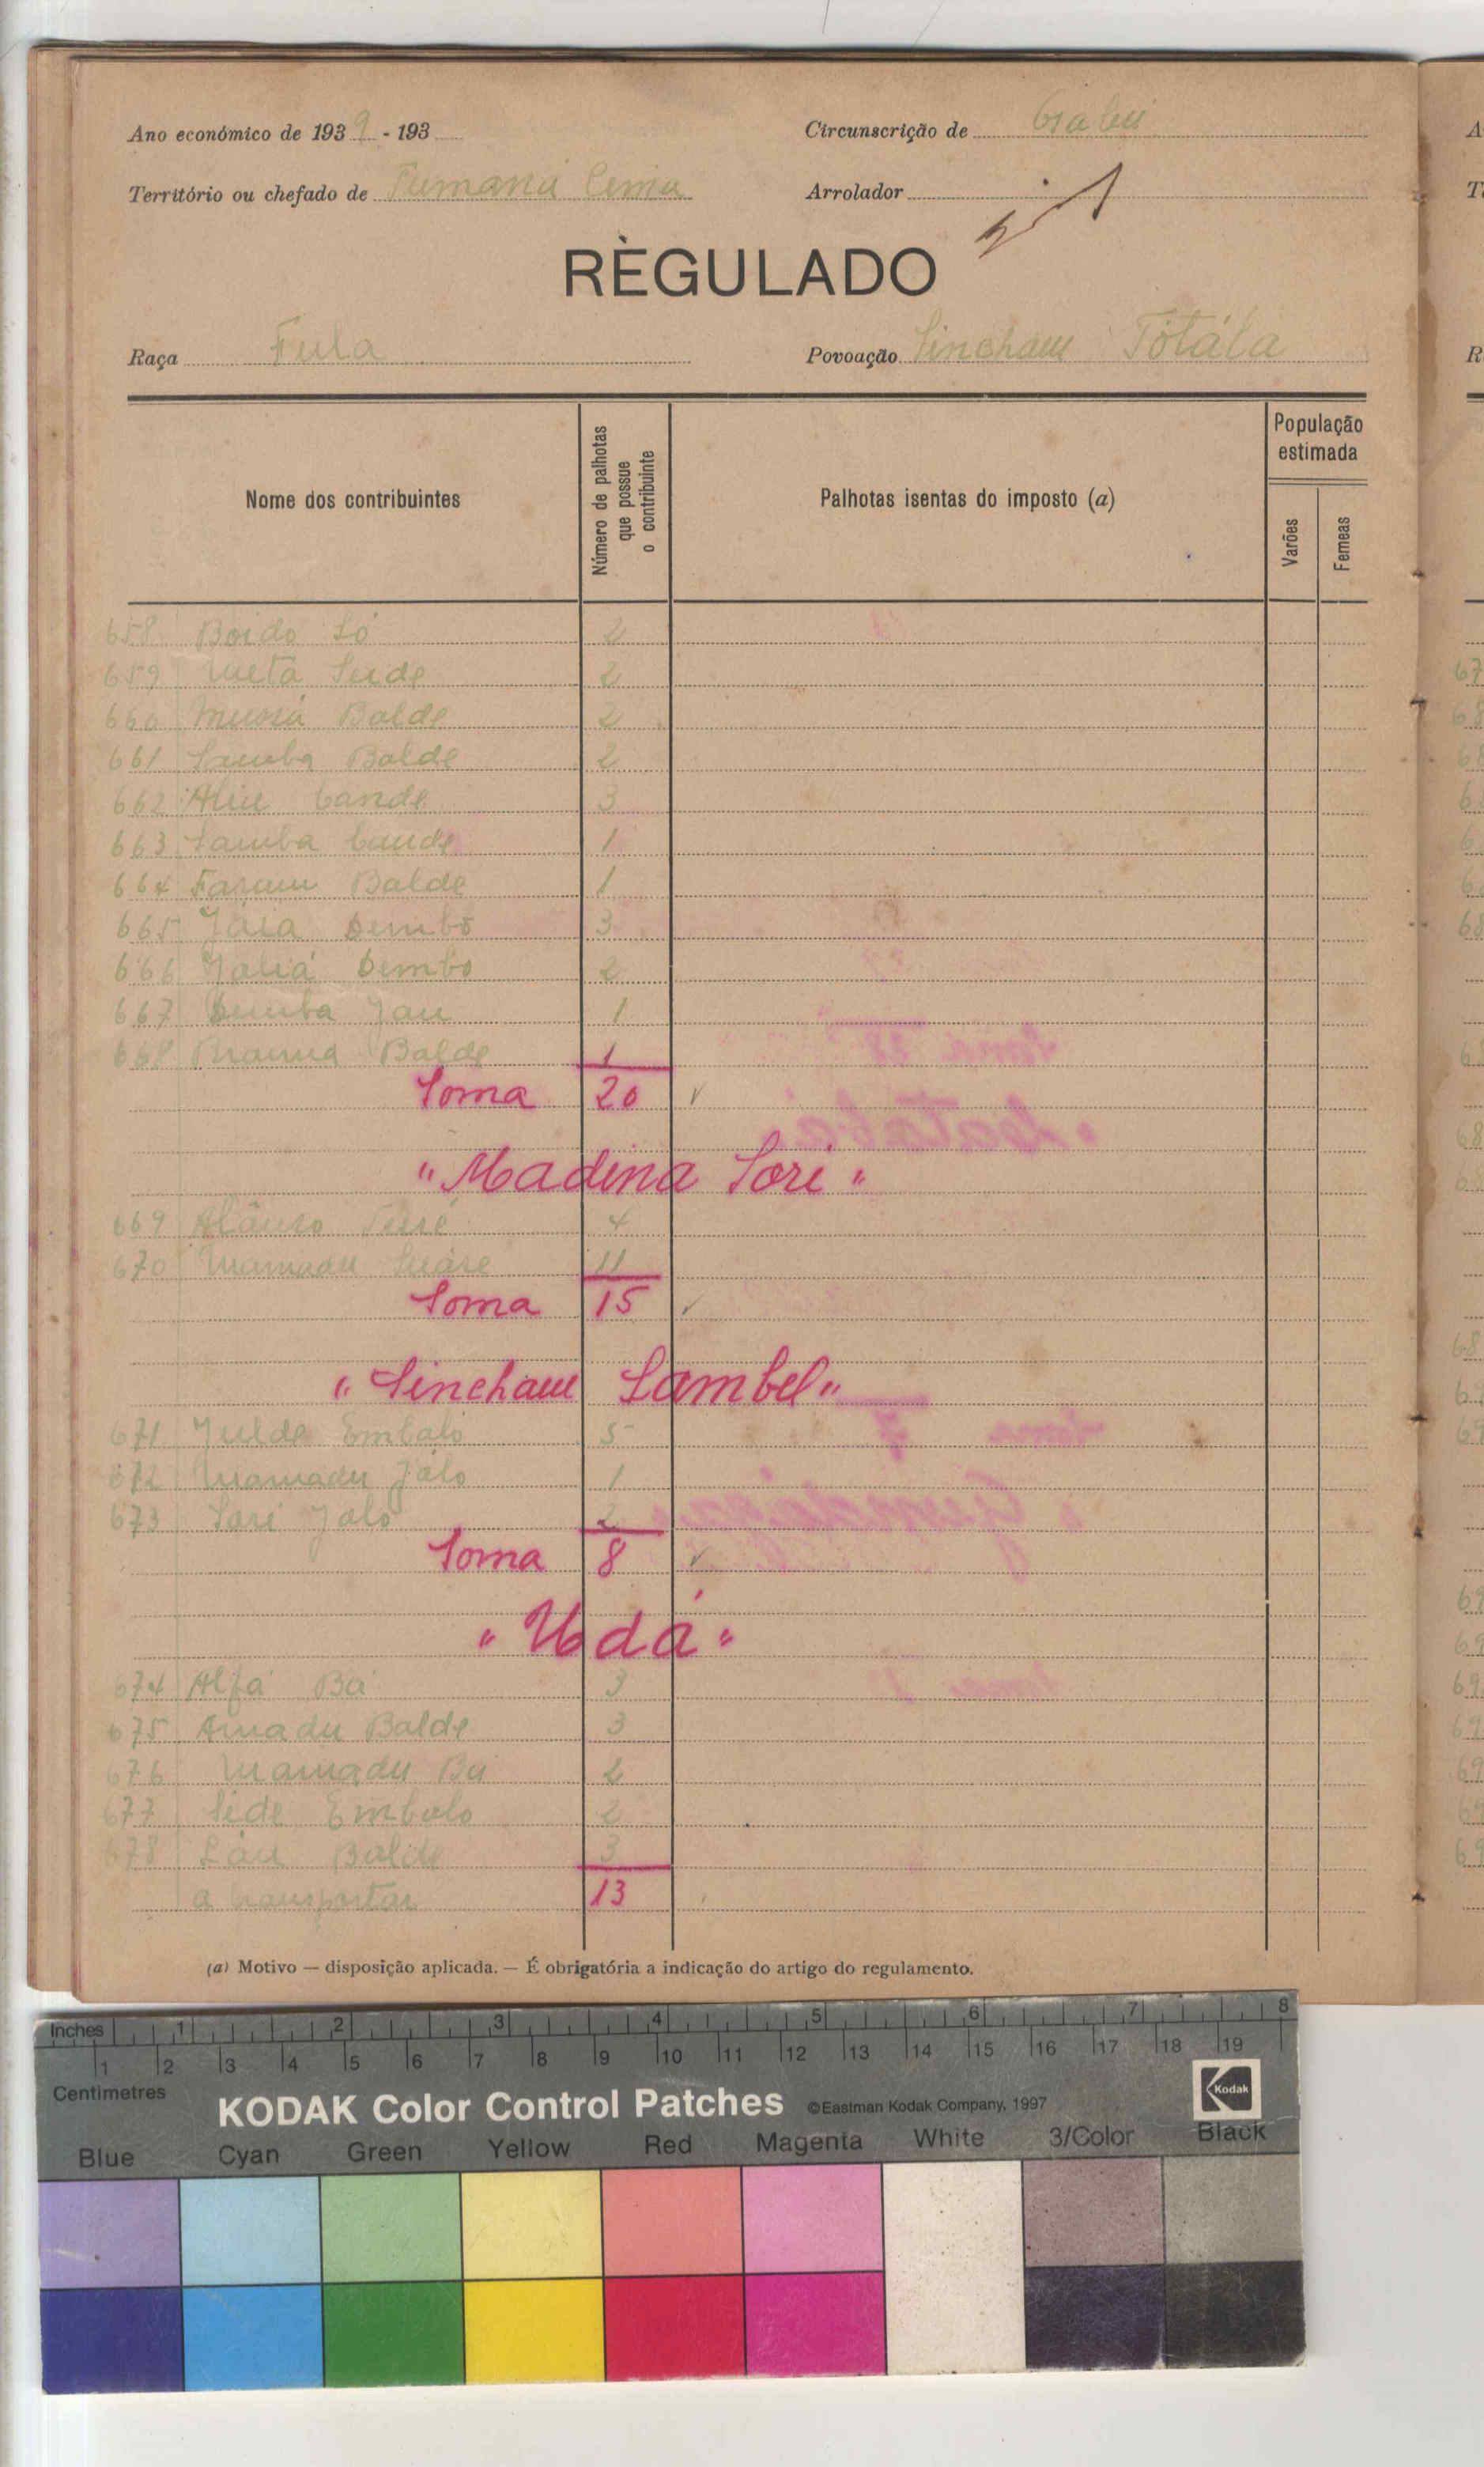 Ano económico de 1939 - 193
Circunscrição de Gabú
Território ou chefado de Pumaná Cima
Arrolador
RÈGULADO
Raça Fula
Povoação Sincham Tótála
Nome dos contribuintes
Número de palhotas que possue o contribuinte
Palhotas isentas do imposto (a)
População estimada
Varões
Femeas
658 Bordo Só 2
659 Seide 2
660 Balde 2
661 Samba Balde 2
662 Aliu Cande 3
663 Samba Cande 1
664 Balde 1
665 Jaia Dembo 3
666 Dembo 2
667 Demba Jau 1
668 Balde 1
Soma 20
"Madina Sori"
669 4
670 Mamadu 11
Soma 15
"Sincham Sambel"
671 Julde Embaló 5
672 Mamadu Jaló 1
673 Sori Jaló 2
Soma 8
"Udá"
674 Alfa Bá 3
675 Amadu Balde 3
676 Mamadu Bá 2
677 Side Embalo 2
678 Balde 3
a transportar 13
(a) Motivo — disposição aplicada. — É obrigatória a indicação do artigo do regulamento.
Inches 1 2 3 4 5 6 7 8
1 2 3 4 5 6 7 8 9 10 11 12 13 14 15 16 17 18 19
Centimetres
KODAK Color Control Patches
©Eastman Kodak Company, 1997
Kodak
Blue Cyan Green Yellow Red Magenta White 3/Color Black